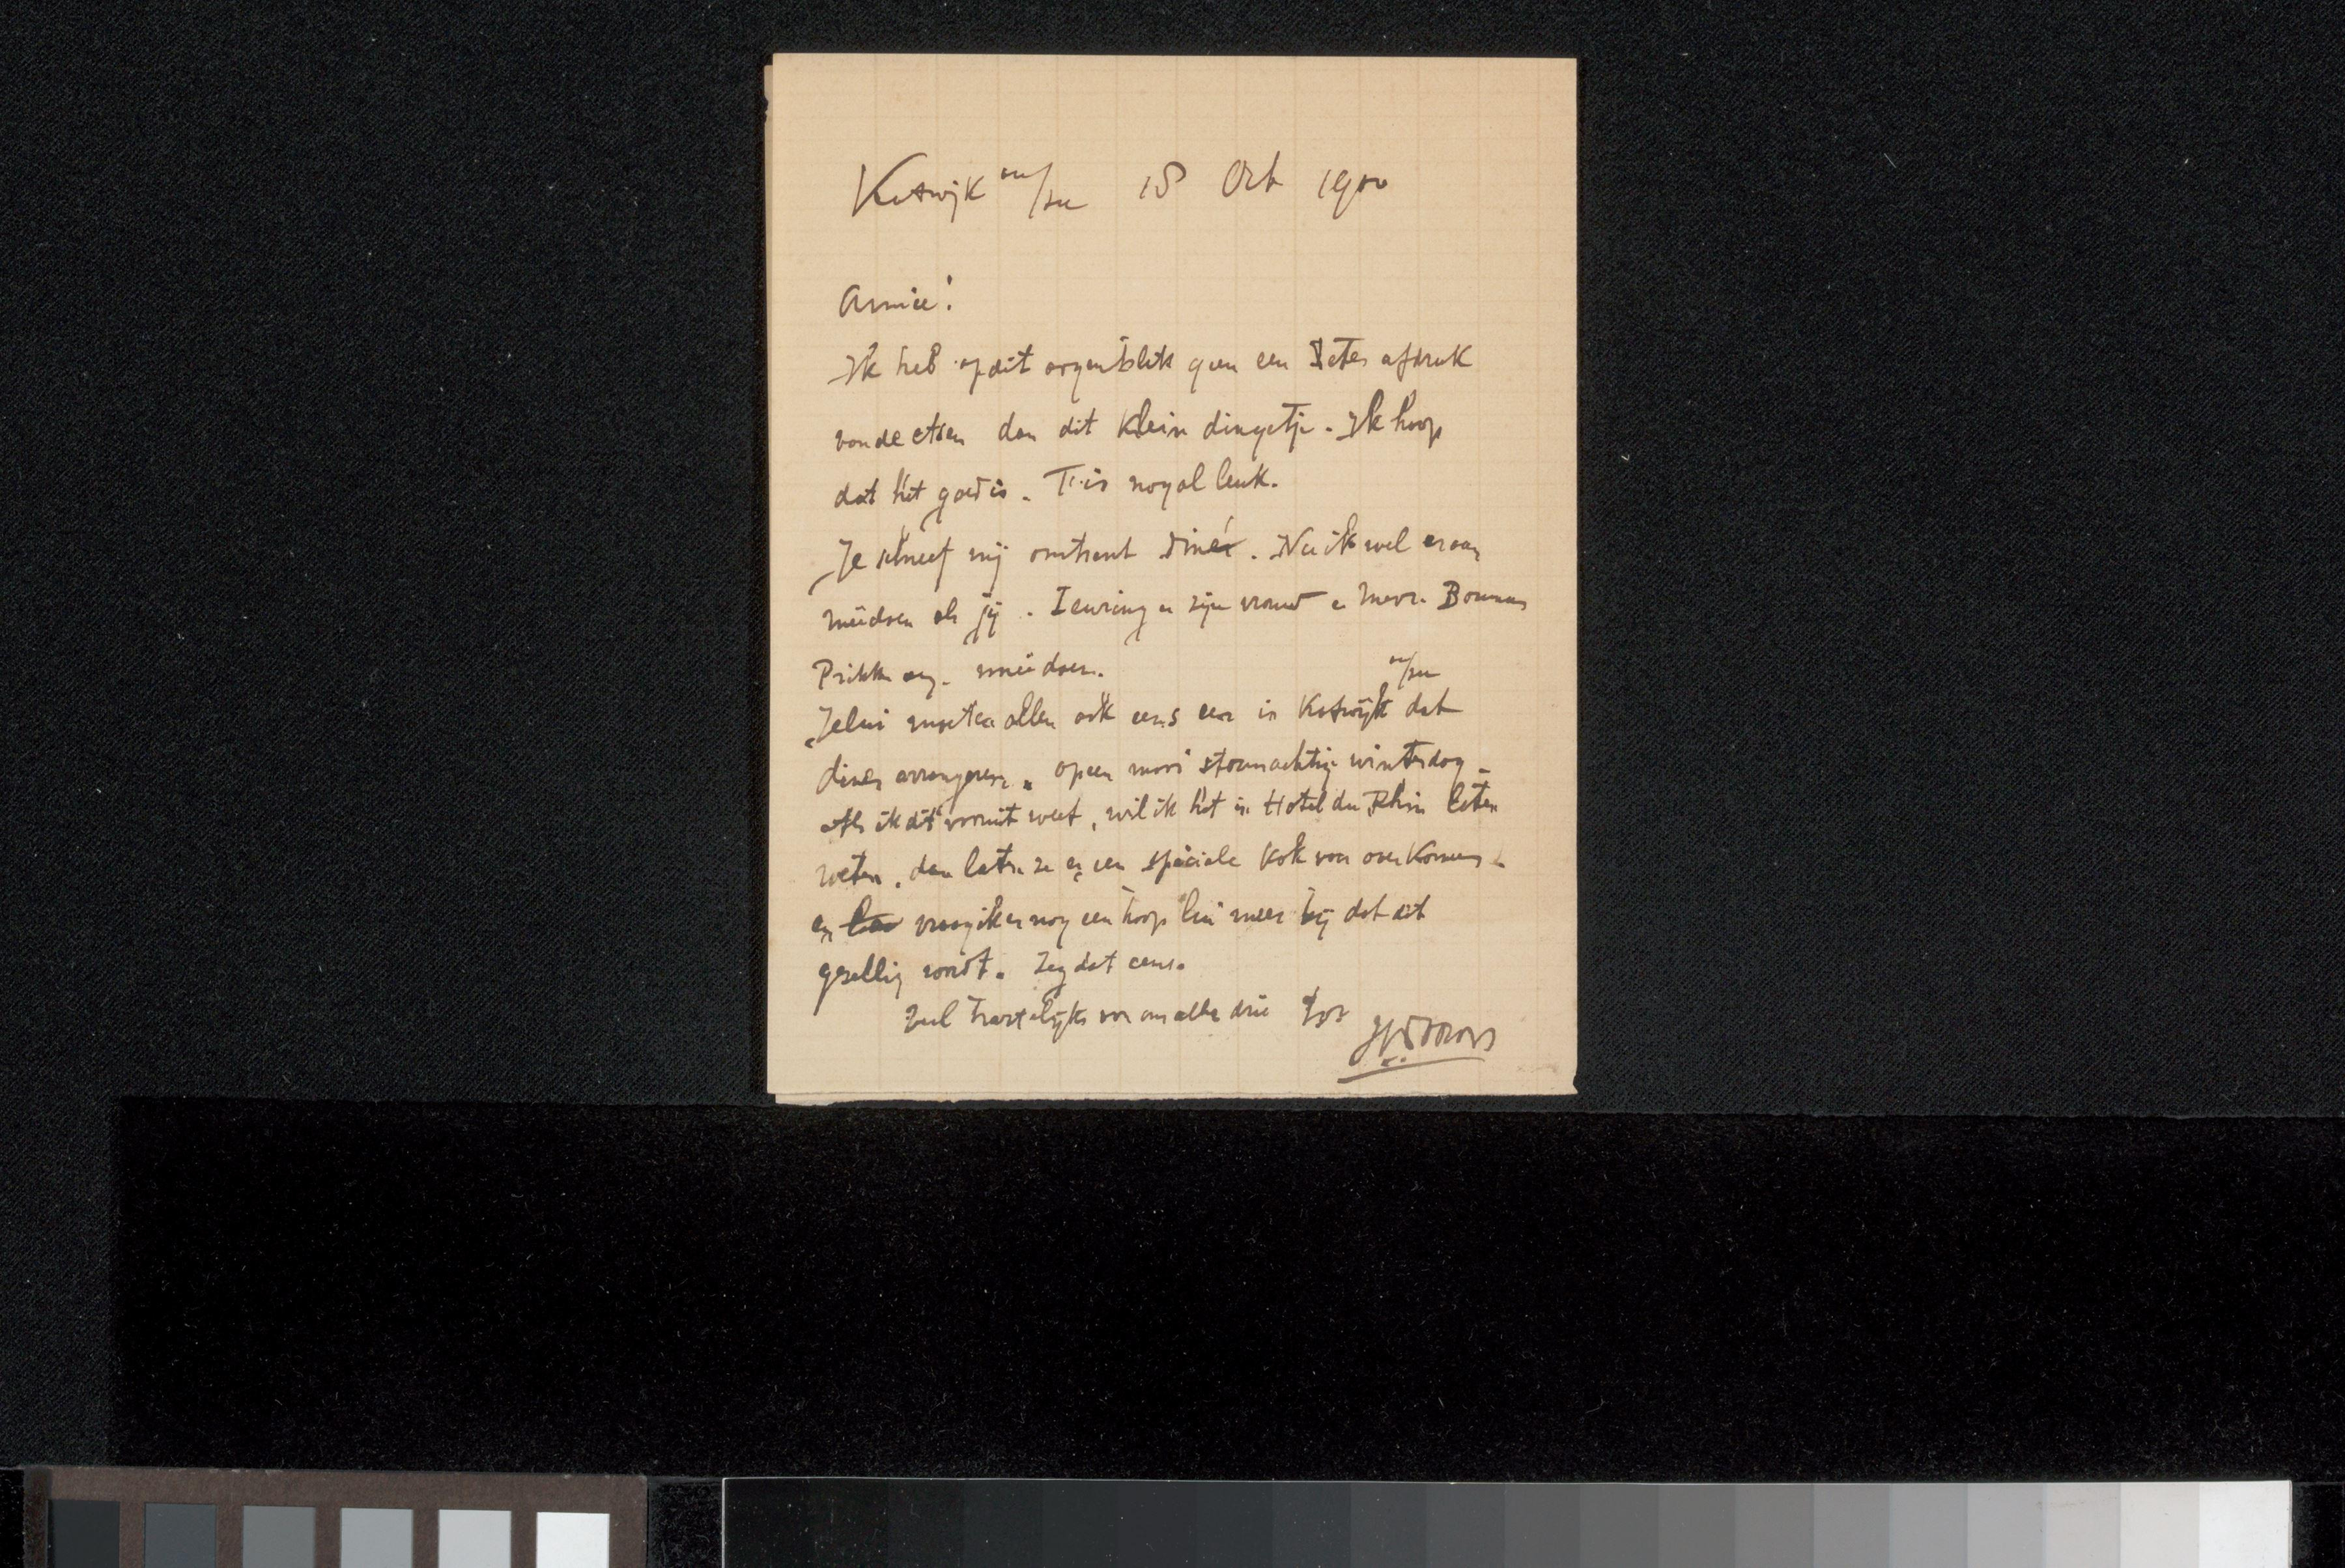 Katwijk a/zee 18 Oct 1900
Amice!
Ik heb op dit oogenblik geen een beter afdruk
van de etsen dan dit klein dingetje. Ik hoop
dat het goed is. T is nogal leuk.
Je schreef mij omtrent diner. Nu ik wel eraan
meedoen als jij. Isuring en zijn vrouw en Mevr.
Prikk enz. meedoen.
Jelui moeten allen ook eens een in Katwijk a/zee dat
diner arrangeren. op een mooi stormachtig winterdag -
Als ik dit vooruit weet, wil ik het in Hotel du Rhin laten
weten, dan laten ze er een speciale kok voor over komen -
en vraag ik er nog een hoop lui meer bij dat dit
gezellig wordt. Zeg dat eens.
Veel hartelijks van ons alle drie